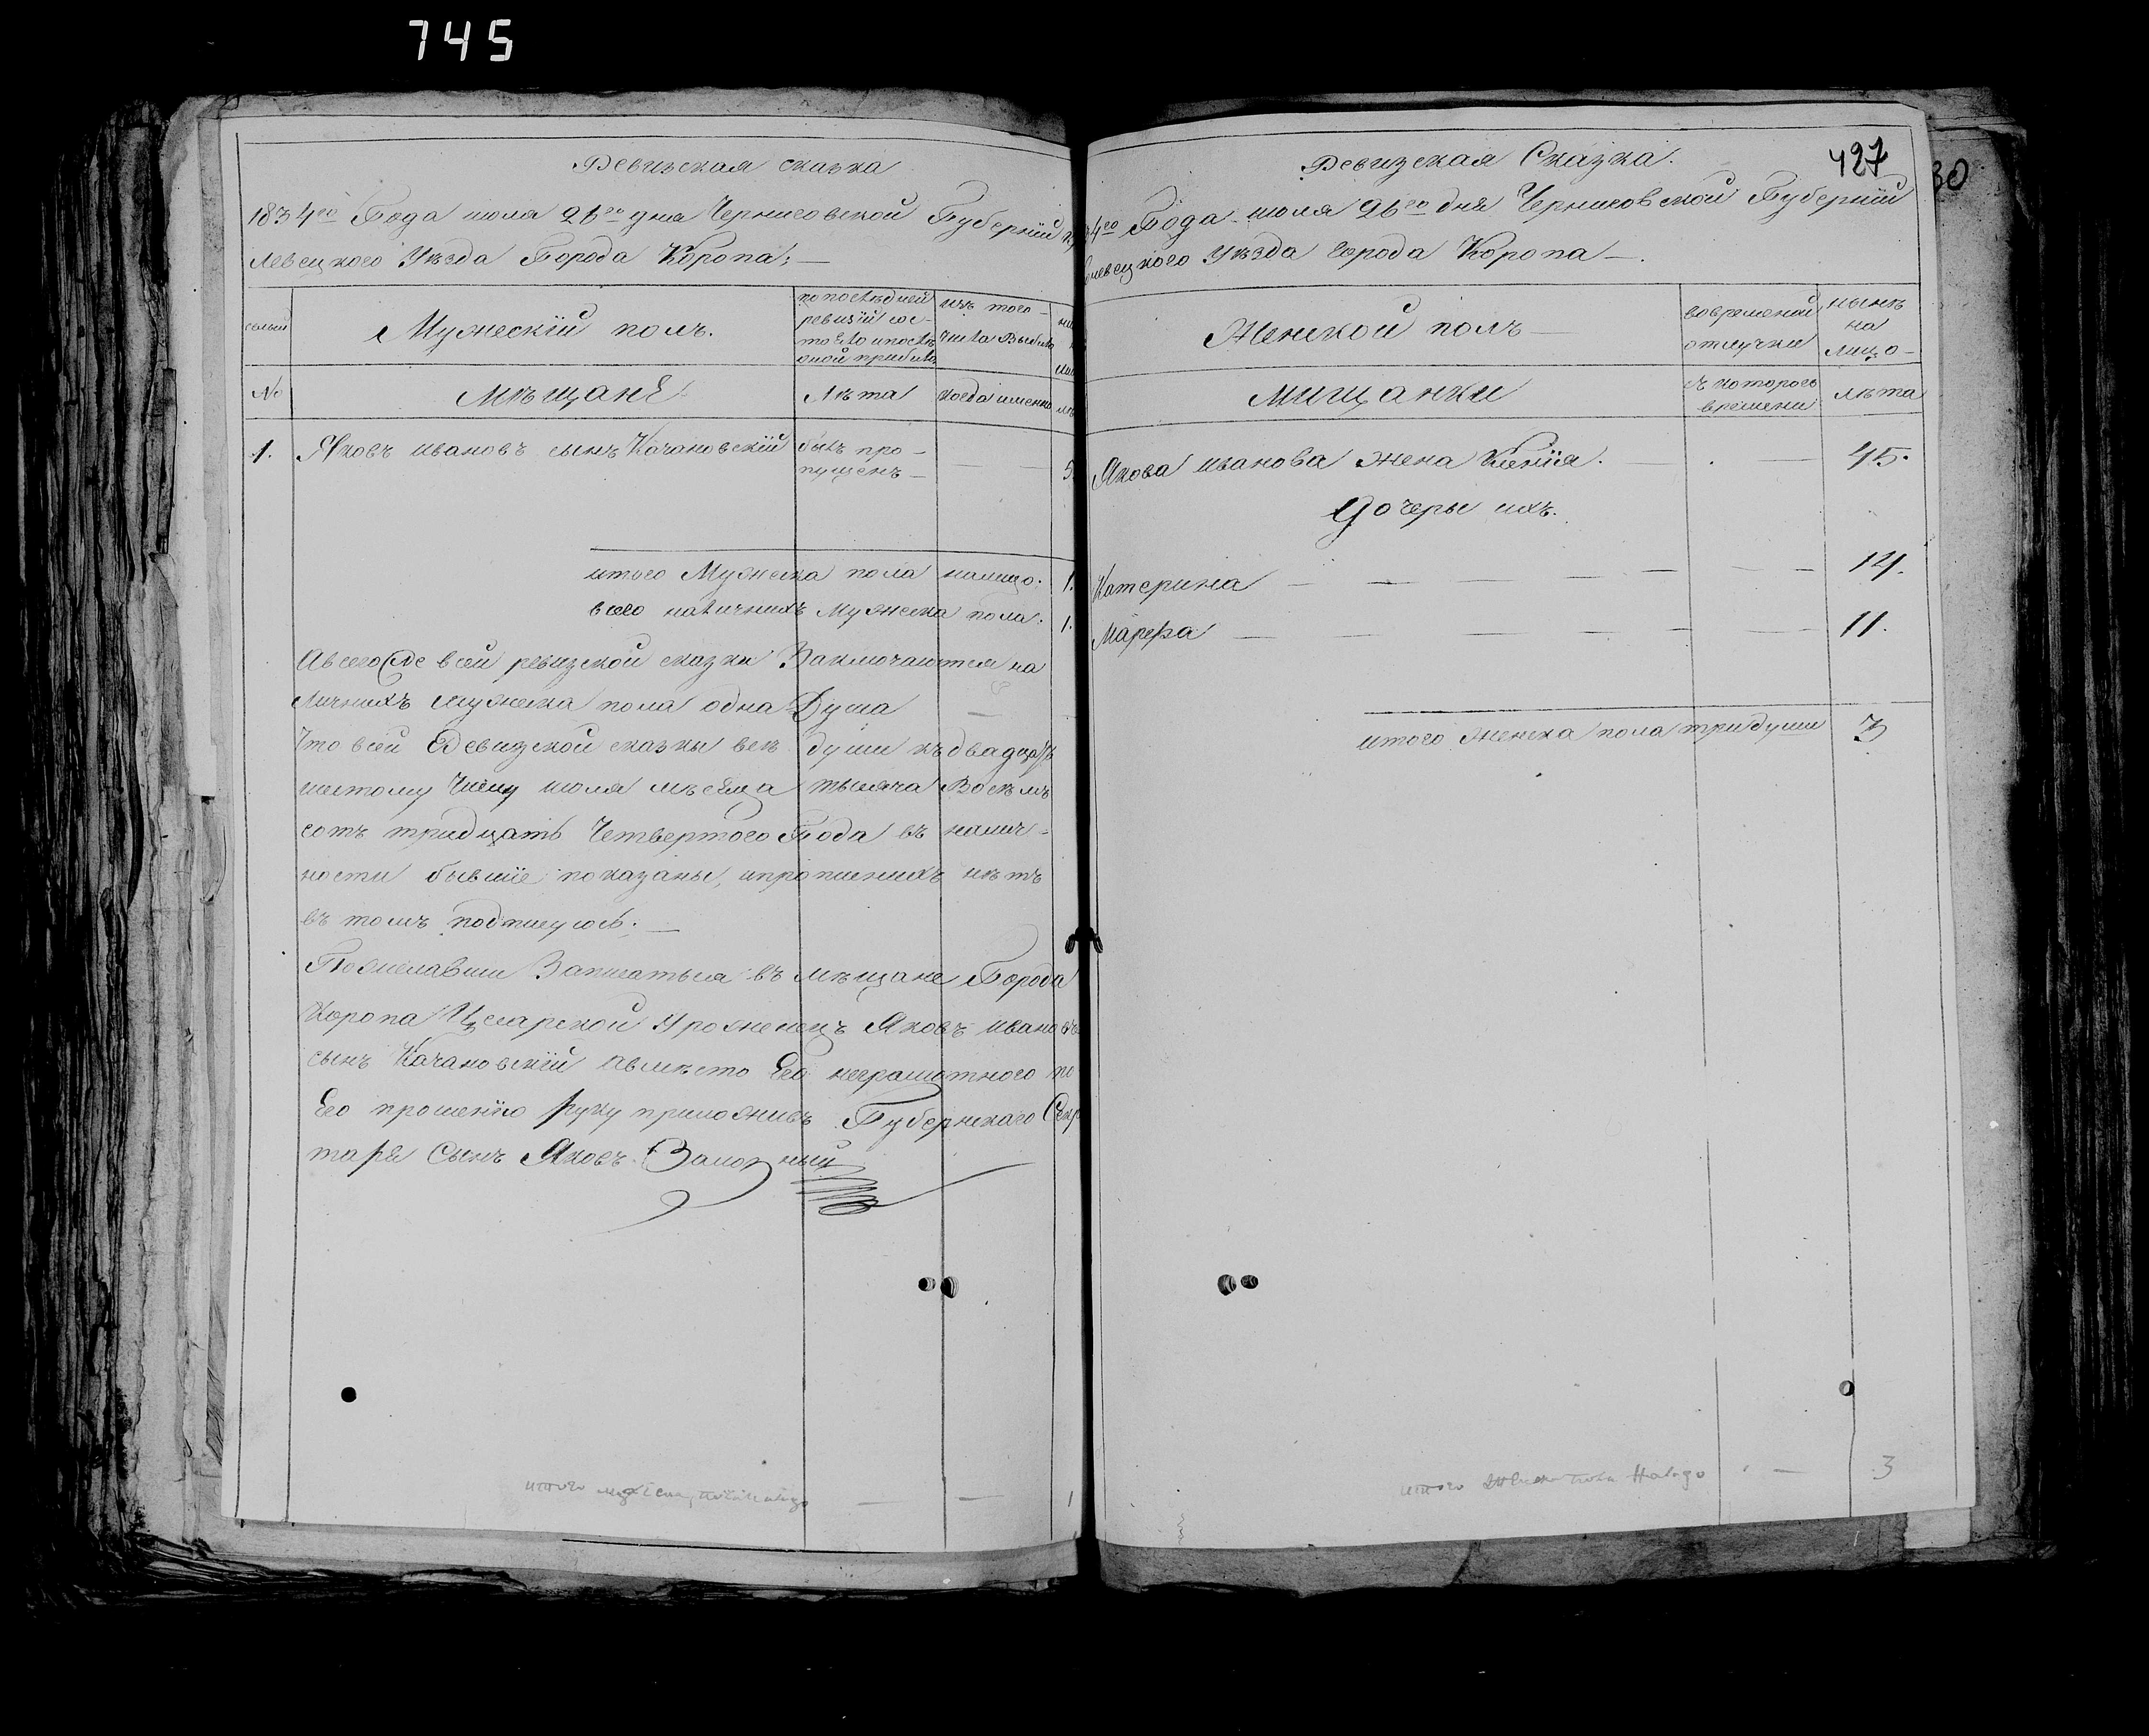 745
Ревизская сказка
1834го Года июля 26го дня Черниговской Губернїи
левецкого Уезда Города Коропа;
семьи
Мужескїй полъ.
по последней
ревизїи сос-
тояло и после
оной прибыло
изъ того
числа выбыло
№
Мещане
Лета
когда именно
1. Яковъ ивановъ сынъ Качановскїй
былъ про-
пущенъ
итого Мужеска пола налицо. 1.
всего наличныхъ Мужеска пола. 1.
Авсего въ сей ревизской сказки Заключаются на
личныхъ мужеска пола одна Душа
Что всей Ревизской сказки все души къ двадцать
шестому Числу июля месяца тысяча Восемъ
сотъ тридцать Четвертого Года въ налич-
ности бывшїе показаны, ипрописныхъ нетъ
въ томъ подпишусь.
Пожелавши Записаться въ мещане Города
Коропа Цесарской Уроженецъ Яковъ ивановъ
сынъ Качановскїй авместо Его неграмотного по
Его прошенїю руку приложилъ Губернскаго Секр
таря Сынъ Яковъ
итого мужеска пола налицо 1
427
30
Ревизская Сказка.
4го Года июля 26го дня Черниговской Губернїи
левецкого Уезда города Коропа
Женской полъ
вовременной
отлучки
ныне
на
лицо
Мищанки
съ которого
времени
лета
Якова иванова жена Ксенїя. 45.
Дочеры ихъ.
Катерина 14.
Марфа 11.
итого женска пола тридуши 3
итого женска пола Налицо 3